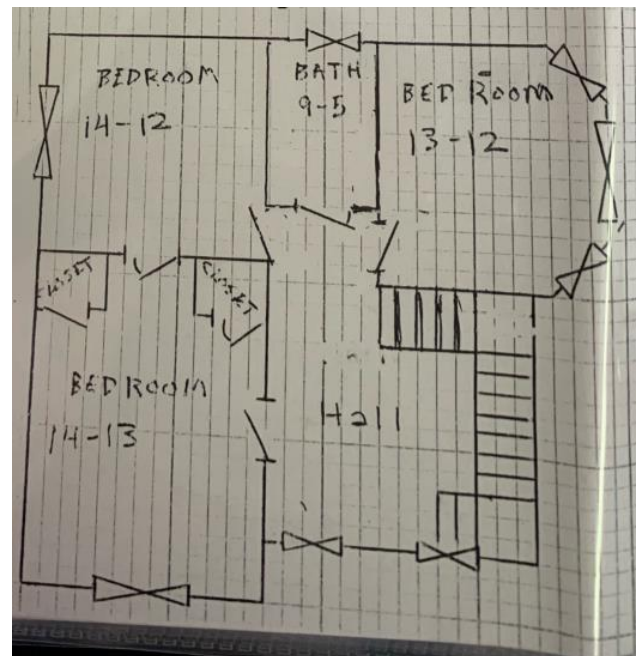 BEDROOM
14-12
BATH
9-5
BED ROOM
13-12
CLOSET
CLOSET
BEDROOM
14-13
Hall